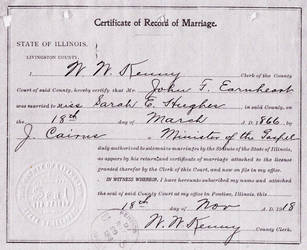 Certificate of Record of Marriage.
STATE OF ILLINOIS,
LIVINGSTON COUNTY.
I W. W. Kenny Clerk of the County
Court of said County, hereby certify that Mr John F. Earnheart
was married to Miss Sarah E. Hughes in said County, on
the 18th day of March A. D. 1866, by
J. Cairns a Minister of the Gospel
duly authorized to solemnize marriages by the Statute of the State of Illinois,
as appears by his returned certificate of marriage attached to the license
granted therefor by the Clerk of this Court, and now on file in my office.
IN WITNESS WHEREOF, I have hereunto subscribed my name and attached
the seal of said County Court at my office in Pontiac, Illinois, this
18th day of Nov A. D. 1918
W. W. Kenny
County Clerk.